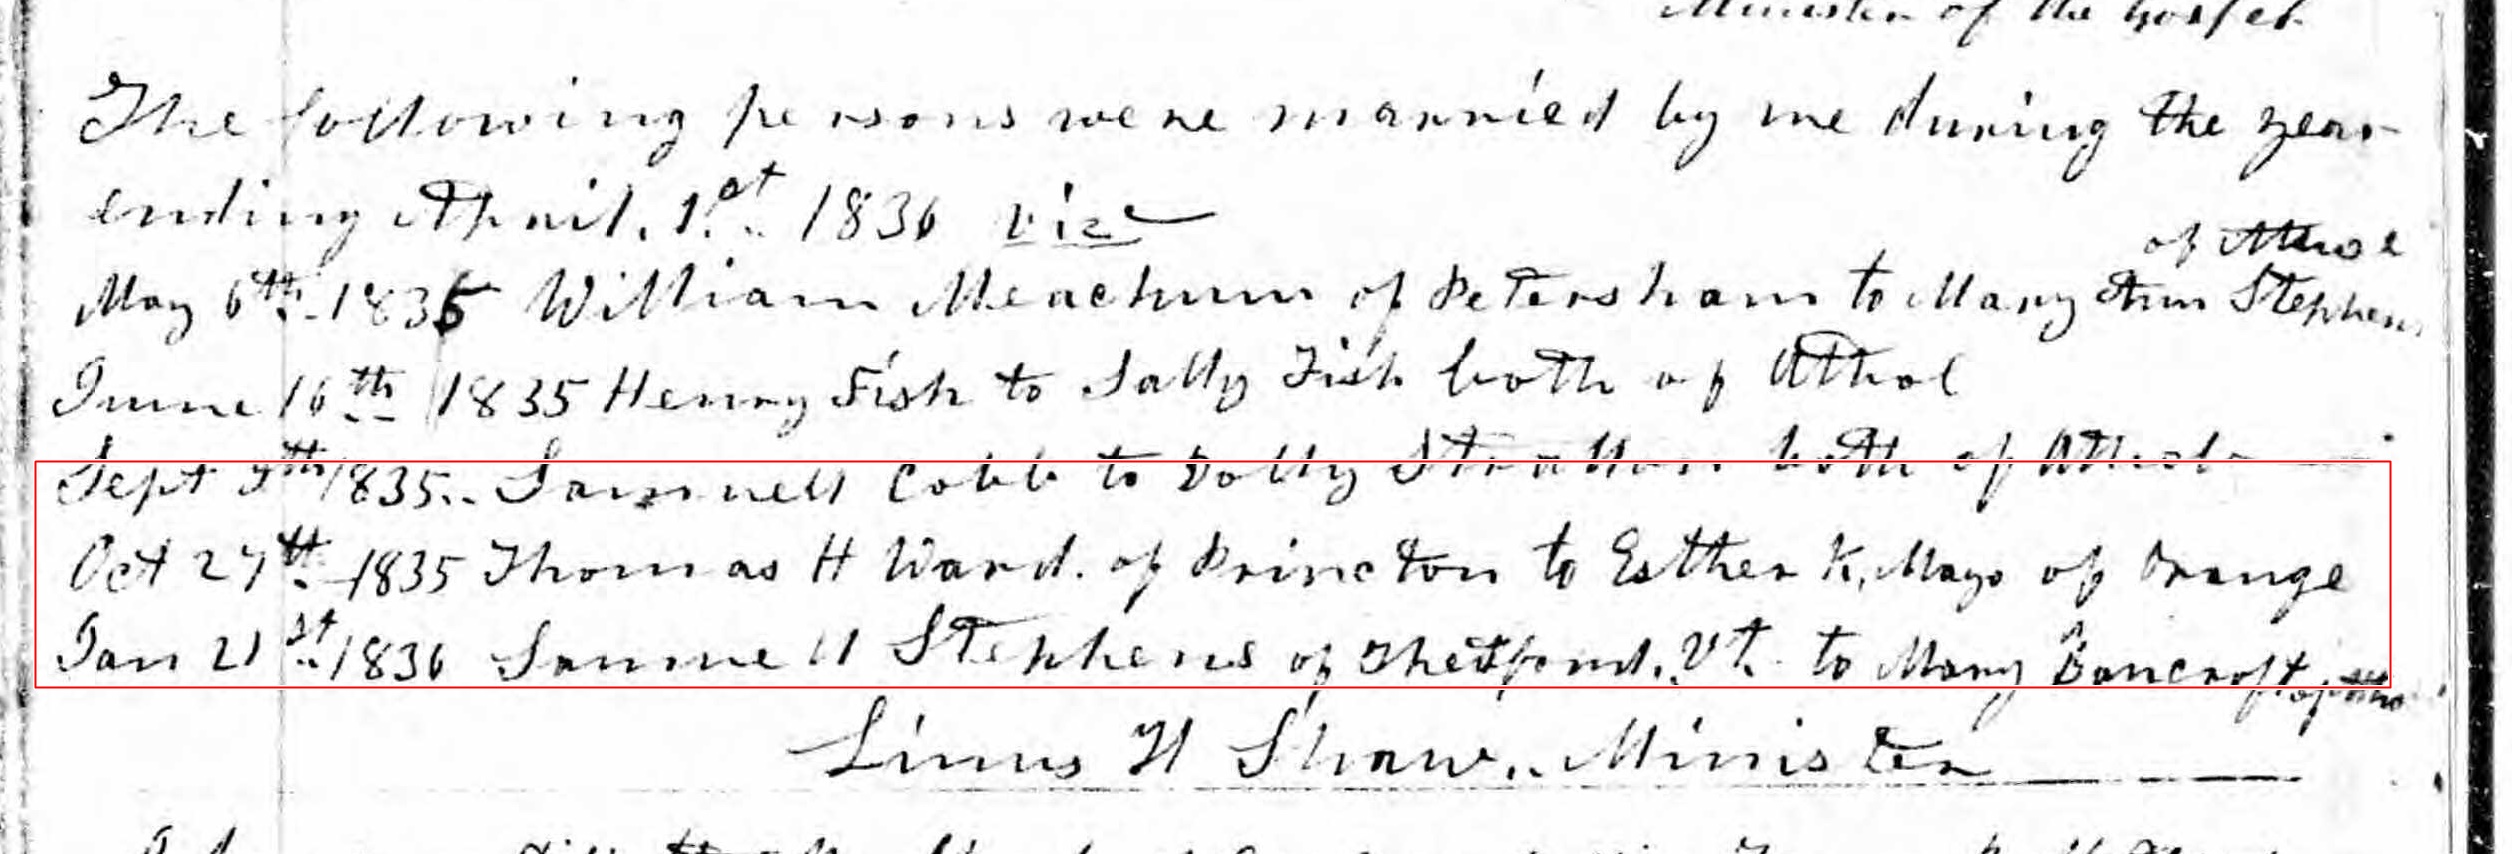 Minister of the Gospel
The following persons were married by me during the year
ending April. 1st 1836 viz
of Athol
May 6th 1835 William Meachum of Petersham to Mary Ann Stephens
June 16th 1835 Henry Fish to Sally Fish both of Athol
Sept 9th 1835. Samuell Cobb to Dolly Stratton both of Athol
Oct 27th 1835 Thomas H Ward. of Princton to Esther K. Mayo of Orange
Jan 21st 1836 Samuell Stephens of Thetford. Vt. to Mary Bancroft of Athol
Linus H Shaw. Minister